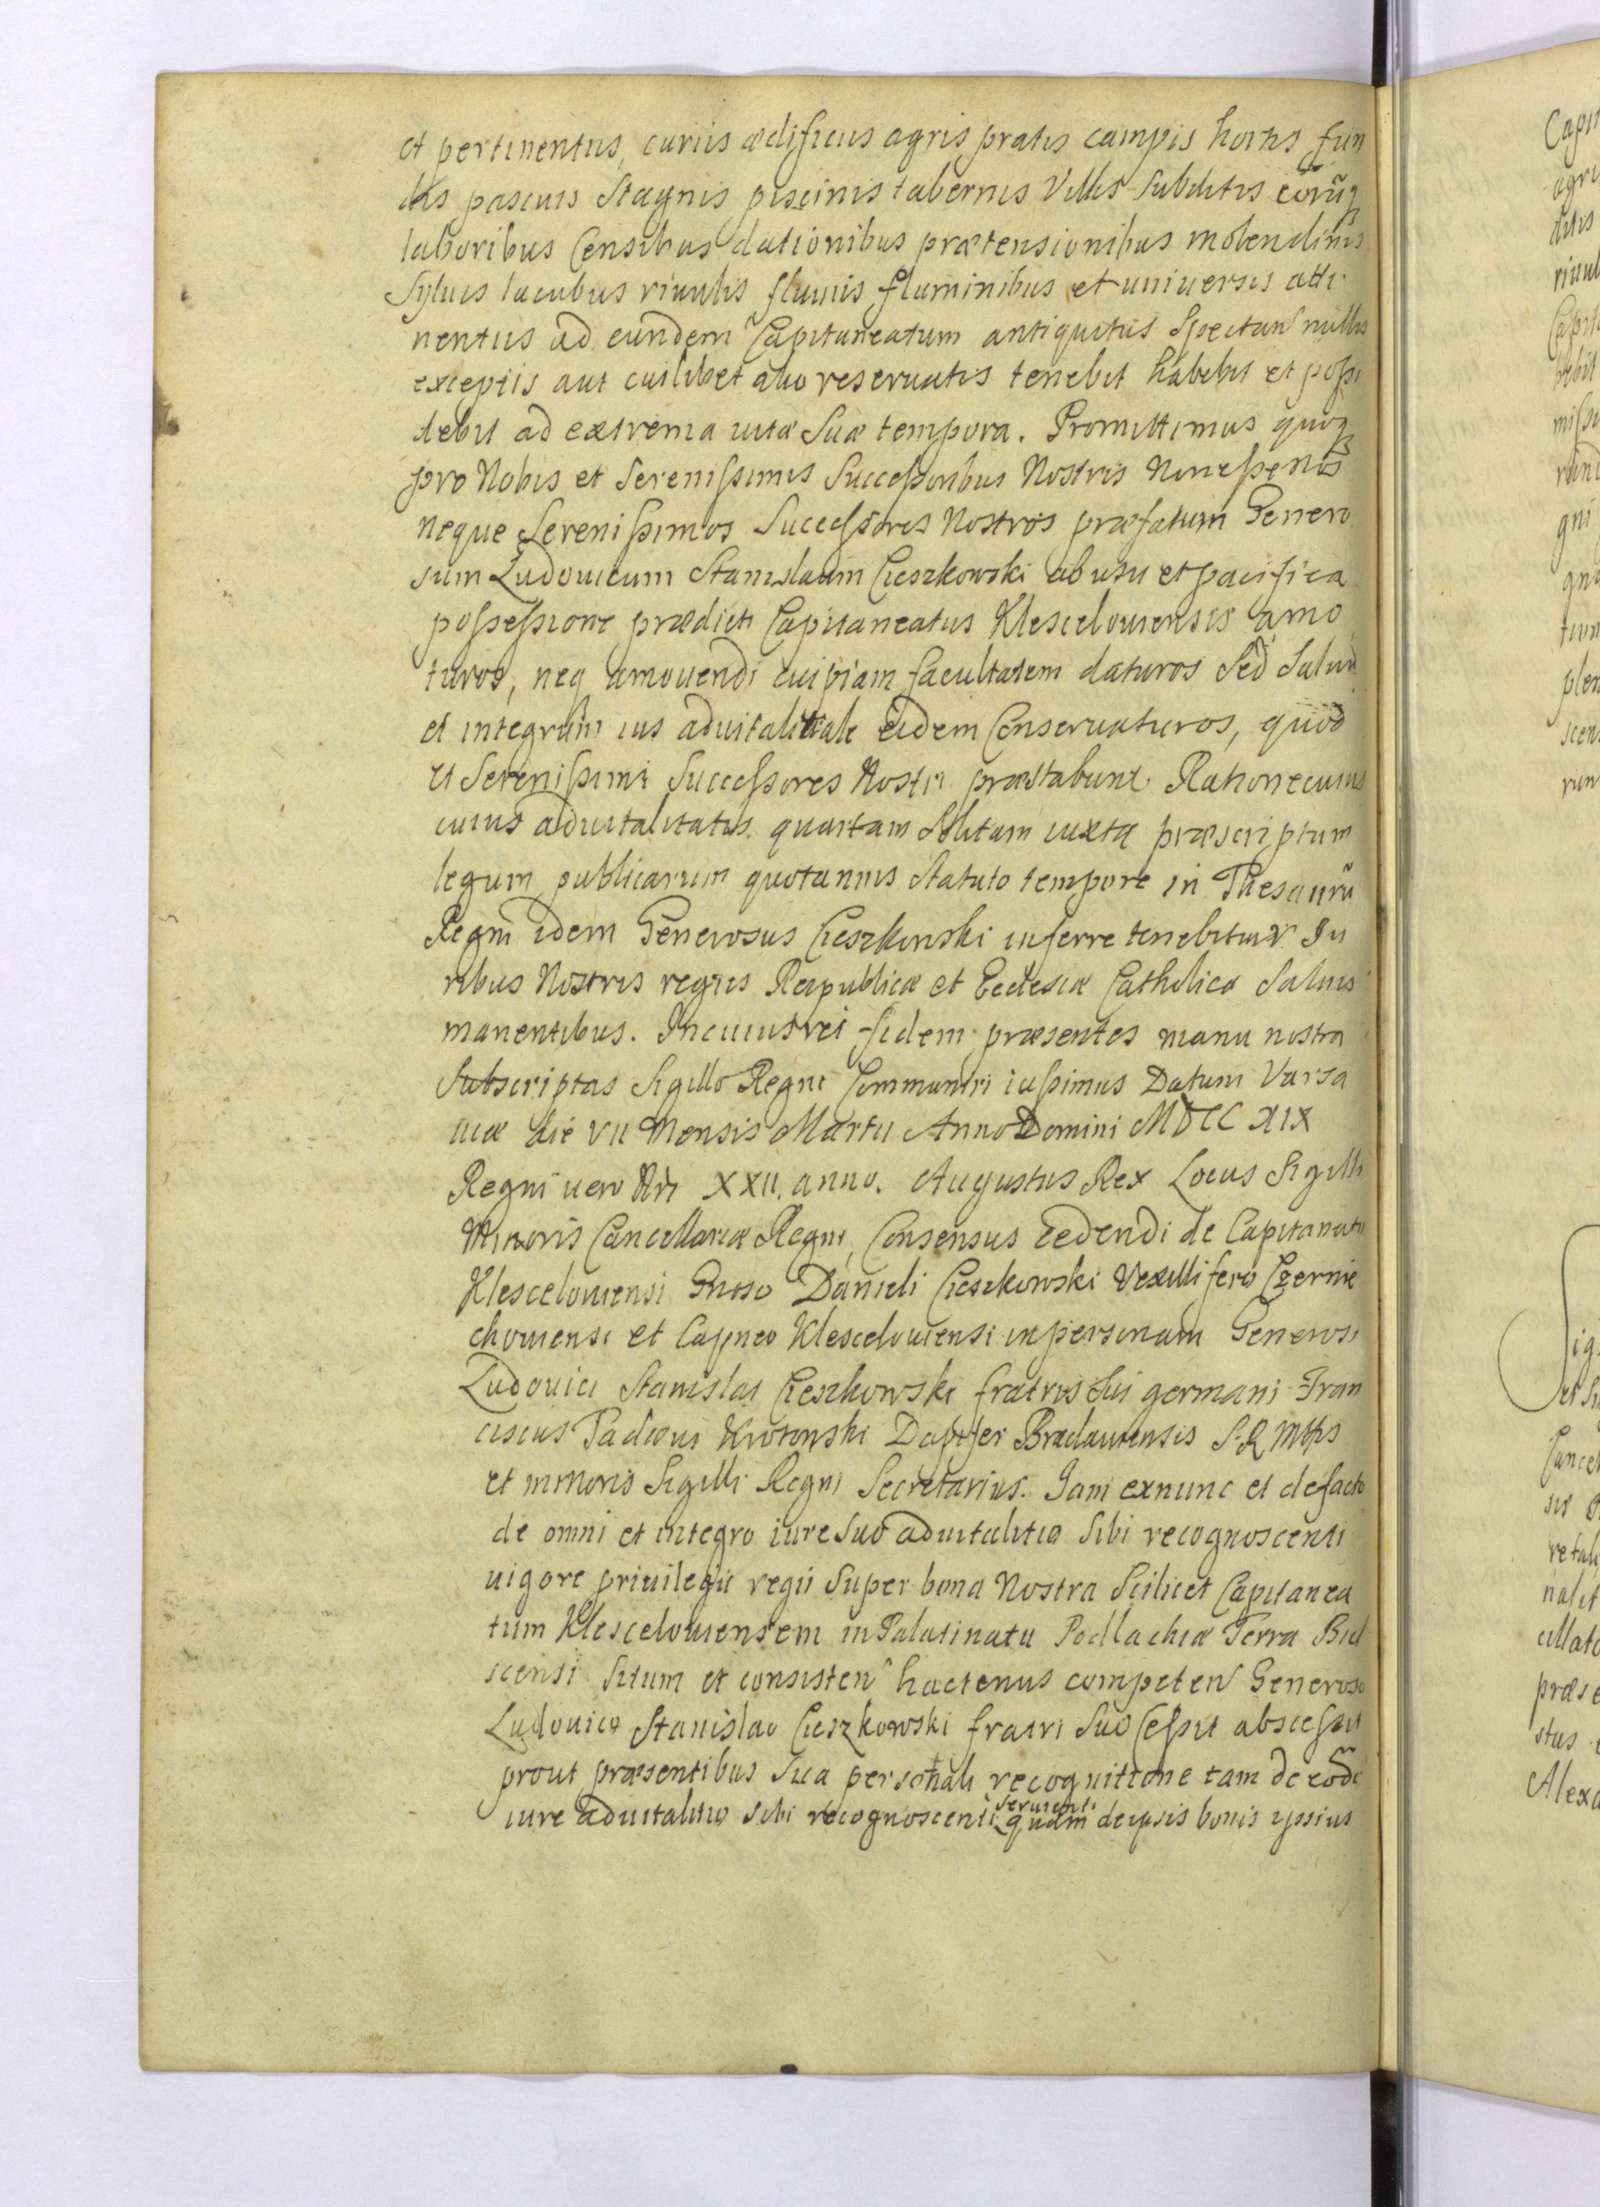 et pertinentiis, curiis ædificiis agris pratis campis hortis fun
dis pascuis Stagnis piscinis tabernis Villis Subditis eorūq
laboribus Censibus dationibus prætensionibus molendinis
Syluis lacubus riuulis fluuiis fluminibus et uniuersis atti
nentiis ad eundem Capitaneatum antiquitus Spectan nullis
exceptis aut cuilibet alio reseruatis tenebit habebit et possi
debit ad extrema uitæ Suæ tempora. Promittimus quoq
pro Nobis et Serenissimis Successoribus Nostris Non esse nos
neque Serenissimos Successores Nostros præfatum Genero
sum Ludouicum Stanislaum Cieszkowski ab usu et pacifica
possessione prædicti Capitaneatus Klescelouiensis amo
turos, neq amouendi cuipiam facultatem daturos Sed Saluū
et integrum ius aduitalitale eidem Conseruaturos, quod
et Serenissimi Successores Nostri præstabunt. Ratione cuius
cuius aduitalitatis quartam Solitam iuxta præscriptum
legum publicarum quotannis statuto tempore in Thesaurū
Regni idem Generosus Cieszkowski inferre tenebitur. Iu
ribus Nostris regiis Reipublicæ et Ecclesiæ Catholicæ Saluis
manentibus. In cuius rei fidem præsentes manu nostra
Subscriptas Sigillo Regni Communiri iussimus Datum Varsa
uiæ die VII Mensis Martii Anno Domini MDCC XIX
Regni uero Nri XXII. anno. Augustus Rex Locus Sigilli
Minoris Cancellariæ Regni, Consensus cedendi de Capitaneatu
Klescelouiensi Gnoso Danieli Cieszkowski Vexillifero Czernie
chouiensi et Capneo Klescelouiensi in personam Generosi
Ludouici Stanislai Cieszkowski fratris Sui germani Fran
ciscus Tadæus Krotowski Dapifer Braclauiensis S. R. Mttis
et minoris Sigilli Regni Secretarius. Iam exnunc et defacto
de omni et integro iure Suo aduitalitio Sibi recognoscenti
uigore priuilegii regii Super bona Nostra Scilicet Capitanea
tum Klescelouiensem in Palatinatu Podlachiæ Terra Biel
scensi Situm et consisten hactenus competen Generoso
Ludouico Stanislao Cieszkowski fratri Suo Cessit abscessit
prout præsentibus Sua personali recognitione tam de eode
iure aduitalitio Sibi recognoscenti seruienti quam de ipsis bonis ypsius